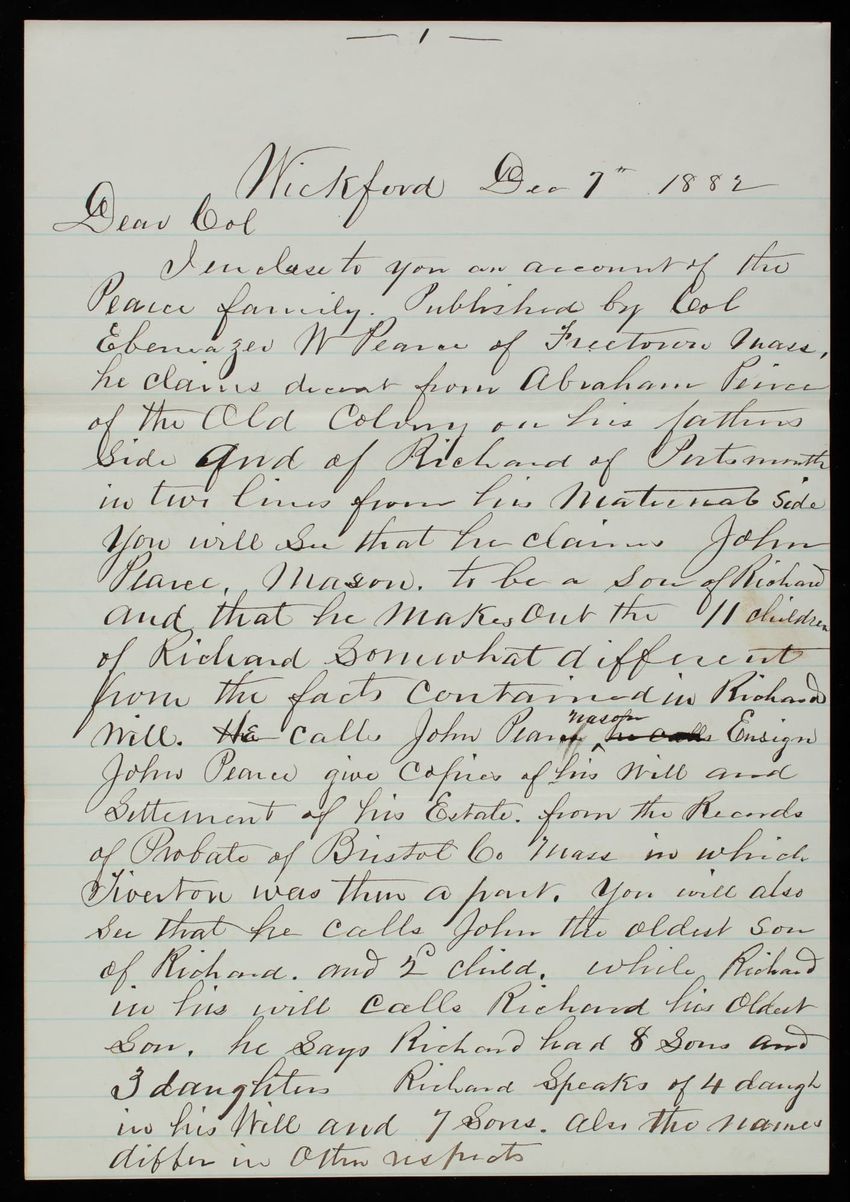 — 1 —
Wickford Dec 7th 1882
Dear Col
I enclose to you an account of the
Pearce family. Published by Col
Ebenezer W Pearce of Freetown Mass,
he claims decent from Abraham Peirce
of the Old Colony on his fathers
Side And of Richard of Portsmouth
in two lines from his Maternal Side
You will See that he claims John
Pearce, Mason. to be a Son of Richard
and that he Makes Out the 11 children
of Richard Somewhat different
from the facts Contained in Richard
Will. He Calls John Pearce mason Ensign
John Pearce give Copies of his Will and
Settement of his Estate. from the Records
of Probate of Bristol Co Mass in which
Tiverton was then a part. You will also
See that he calls John the oldest Son
of Richard. and 2d child. while Richard
in his will Calls Richard his Oldest
Son. he Says Richard had 8 Sons and
3 daughters Richard Speaks of 4 daugh
in his Will and 7 Sons. also the names
differ in Other respects